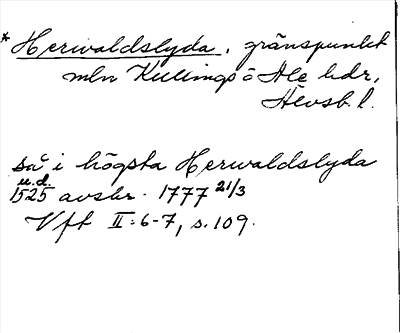 * Herwaldslyda, gränspunkt
mln Kullings o Ale hdr,
Älvsb. l.
så i högsta Herwaldslyda
u.d.
1525 avskr. 1777 21/3
Vff II: 6-7, s. 109.